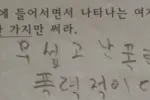 에 들어서면서 나타나는 여자
가지만 써라.
무섭고 난폭
폭력적이